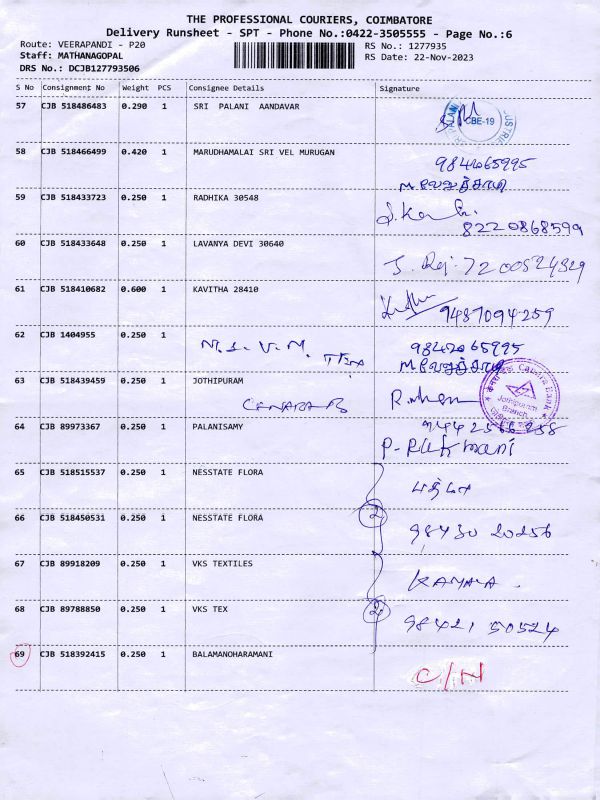 THE PROFESSIONAL COURIERS, COIMBATORE
Delivery Runsheet - SPT - Phone No.:0422-3505555 - Page No.:6
Route: VEERAPANDI - P20
Staff: MATHANAGOPAL
DRS No.: DCJB127793506
RS No.: 1277935
RS Date: 22-Nov-2023
S No Consignment No Weight PCS Consignee Details Signature
57 CJB 518486483 0.290 1 SRI PALANI AANDAVAR
CBE-19
58 CJB 518466499 0.420 1 MARUDHAMALAI SRI VEL MURUGAN
9842065995
59 CJB 518433723 0.250 1 RADHIKA 30548
8220868599
60 CJB 518433648 0.250 1 LAVANYA DEVI 30640
7200524329
61 CJB 518410682 0.600 1 KAVITHA 28410
9487094259
62 CJB 1404955 0.250 1
M.S.V.M. 9842065995
63 CJB 518439459 0.250 1 JOTHIPURAM
CANARA B
Canara Bank
Jothipuram
Branch
64 CJB 89973367 0.250 1 PALANISAMY
P-RUKMANI
65 CJB 518515537 0.250 1 NESSTATE FLORA
66 CJB 518450531 0.250 1 NESSTATE FLORA
2
98430 20256
67 CJB 89918209 0.250 1 VKS TEXTILES
KAMALA.
68 CJB 89788850 0.250 1 VKS TEX
2
98421 50524
69 CJB 518392415 0.250 1 BALAMANOHARAMANI
C/N